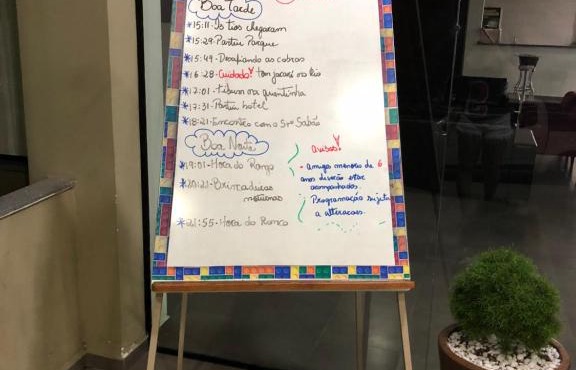 Boa Tarde
*15:11-Os tios chegaram
*15:29-Partiu Parque
*15:49-Desafiando as cobras
*16:28-Cuidado! tem jacaré no rio
*17:01-tibum na quentinha
*17:31-Partiu hotel
*18:21-Encontro com o Srº Sabão
Boa Noite
*19:01-Hora do Rango
*20:21-Brincadeiras
noturnas
*21:55-Hora do Ronco
avisos!
- amigos menores de 6
anos deverão estar
acompanhados.
Programação sujeita
a alteracoes.